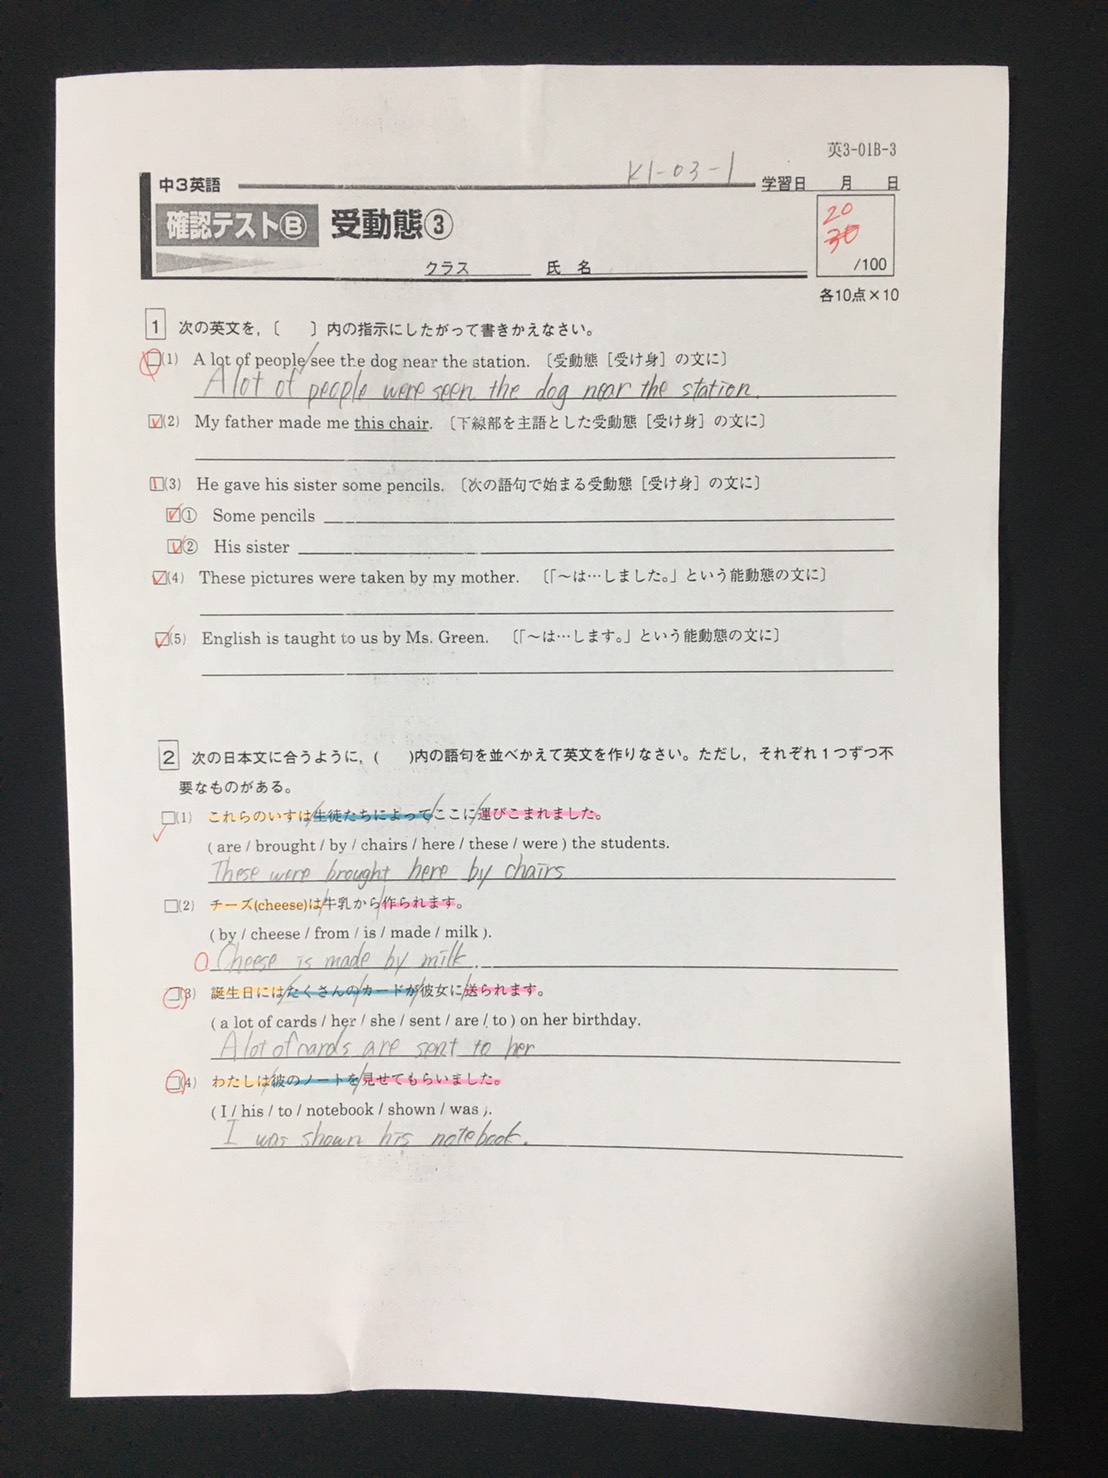 英3-01B-3
K1-03-1
中3英語 学習日 月 日
確認テストⒷ 受動態③
20
30
/100
クラス 氏名
各10点×10
1 次の英文を,〔 〕内の指示にしたがって書きかえなさい。
□(1) A lot of people/see the dog near the station. 〔受動態［受け身］の文に〕
A lot of people were seen the dog near the station.
□(2) My father made me this chair. 〔下線部を主語とした受動態［受け身］の文に〕
□(3) He gave his sister some pencils. 〔次の語句で始まる受動態［受け身］の文に〕
□① Some pencils
□② His sister
□(4) These pictures were taken by my mother. 〔「～は…しました。」という能動態の文に〕
□(5) English is taught to us by Ms. Green. 〔「～は…します。」という能動態の文に〕
2 次の日本文に合うように,( )内の語句を並べかえて英文を作りなさい。ただし,それぞれ1つずつ不
要なものがある。
□(1) これらのいすは/生徒たちによって/ここに/運びこまれました。
( are / brought / by / chairs / here / these / were ) the students.
These were brought here by chairs
□(2) チーズ(cheese)は/牛乳から/作られます。
( by / cheese / from / is / made / milk ).
Cheese is made by milk.
□(3) 誕生日には/たくさんの/カードが/彼女に/送られます。
( a lot of cards / her / she / sent / are / to ) on her birthday.
A lot of cards are sent to her
□(4) わたしは/彼のノートを/見せてもらいました。
( I / his / to / notebook / shown / was ).
I was shown his notebook.